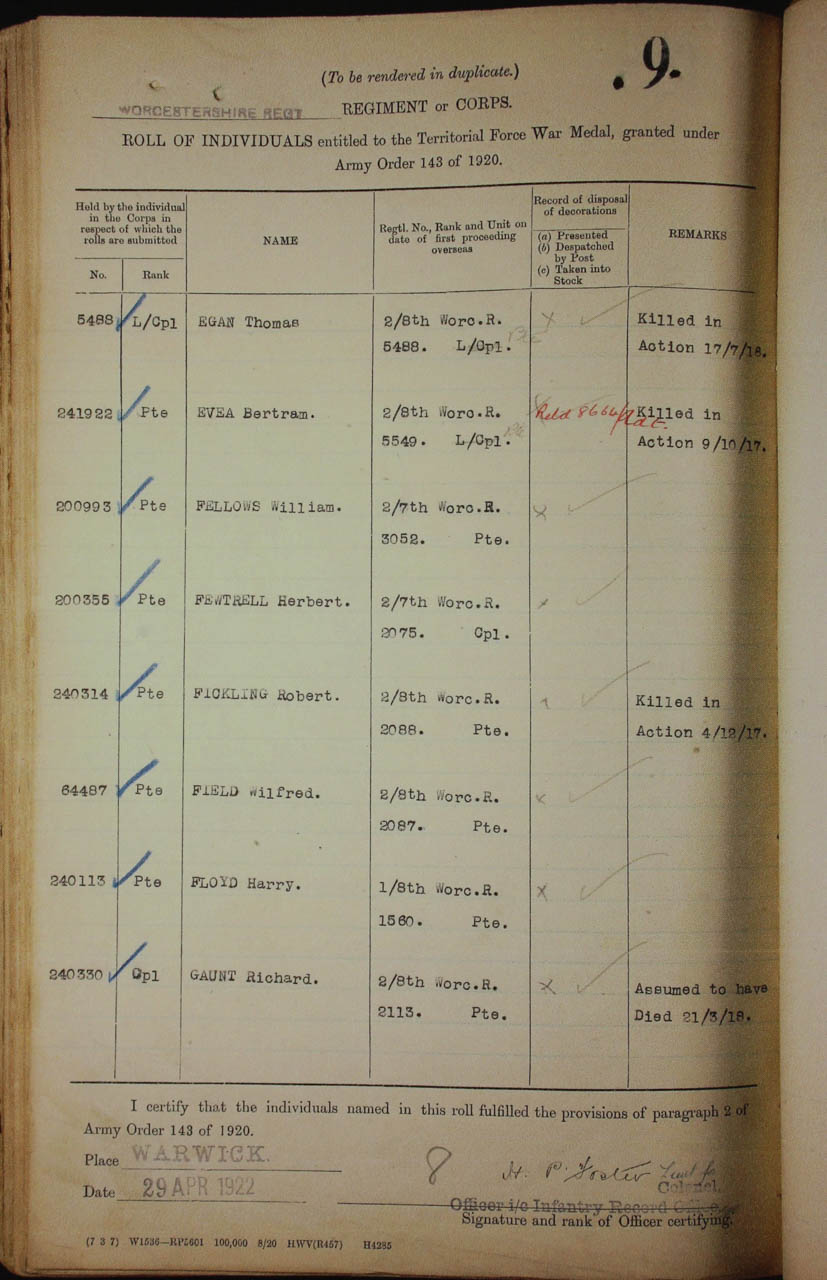 9.
(To be rendered in duplicate.)
WORCESTERSHIRE REGT REGIMENT or CORPS.
ROLL OF INDIVIDUALS entitled to the Territorial Force War Medal, granted under
Army Order 143 of 1920.
Held by the individual
in the Corps in
respect of which the
rolls are submitted
No. Rank
NAME
Regtl. No., Rank and Unit on
date of first proceeding
overseas
Record of disposal
of decorations
(a) Presented
(b) Despatched
by Post
(c) Taken into
Stock
REMARKS
5488 L/Cpl EGAN Thomas 2/8th Worc.R. X Killed in
5488. L/Cpl. Action 17/7/18.
241922 Pte EVEA Bertram. 2/8th Worc.R. Killed in
5549. L/Cpl. Action 9/10/17.
200993 Pte FELLOWS William. 2/7th Worc.R. X
3052. Pte.
200355 Pte FEWTRELL Herbert. 2/7th Worc.R. x
2075. Cpl.
240314 Pte FICKLING Robert. 2/8th Worc.R. Killed in
2088. Pte. Action 4/12/17.
64487 Pte FIELD Wilfred. 2/8th Worc.R. x
2087. Pte.
240113 Pte FLOYD Harry. 1/8th Worc.R. X
1560. Pte.
240330 Cpl GAUNT Richard. 2/8th Worc.R. X Assumed to have
2113. Pte. Died 21/3/18.
I certify that the individuals named in this roll fulfilled the provisions of paragraph 2 of
Army Order 143 of 1920.
Place WARWICK.
8 H. P. Foster Lieut for
Colonel.
Date 29 APR 1922
Officer i/c Infantry Record Office
Signature and rank of Officer certifying.
(7 3 7) W1536—RP5601 100,000 8/20 HWV(R457) H4285